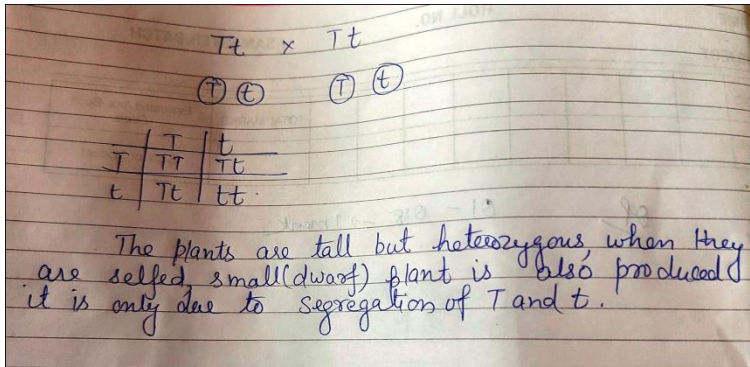 Tt × Tt
T t T t
T t
T TT Tt
t Tt tt.
The plants are tall but heterozygous, when they
are selfed, small(dwarf) plant is also produced
it is only due to segregation of T and t.